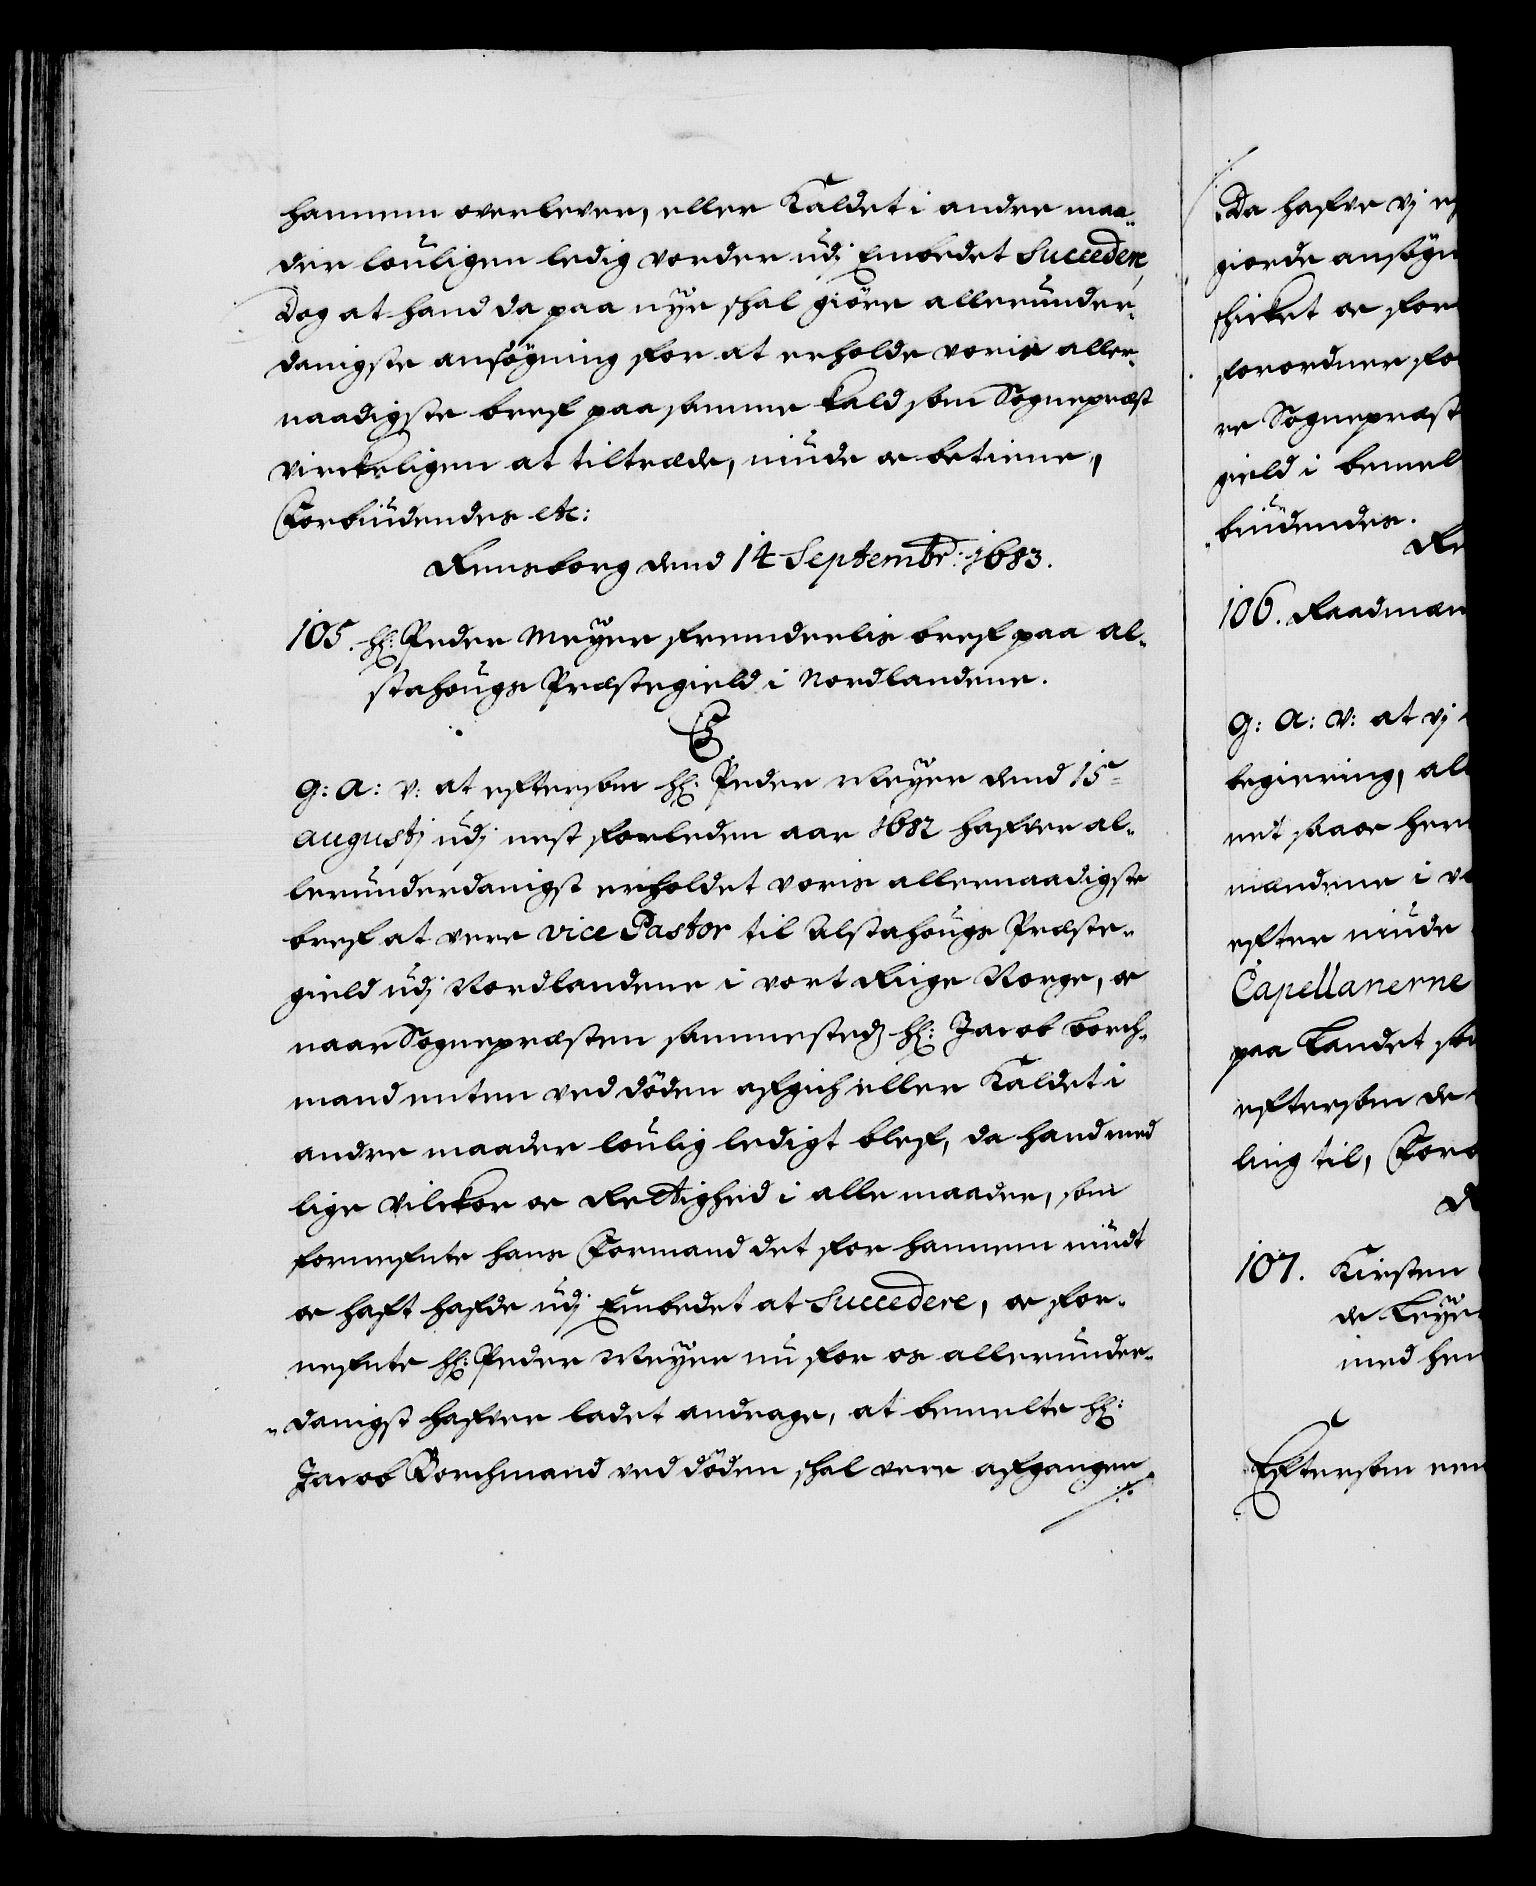 hannem overlever, eller Kaldet i andre maa-
der louligen ledig vorder udj Embedet Succedere,
Dog at hand da paa nye skal giöre allerunder-
danigste ansögning for at erholde voris aller-
naadigste bref paa samme kald som Sognepræst
virckeligen at tiltræde, niude oc betiene,
Forbiudendes etc:
Rensborg dend 14 Septembr: 1683.
105. Hr: Peder Meyer fremdeelis bref paa Al-
stahougs Præstegield i Nordlandene.
G: A: V: at eftersom Hr: Peder Meyer dend 15
Augustj udj nest forleden aar 1682 hafver al-
lerunderdanigst erholdet voris allernaadigste
bref at vere vice Pastor til Alstahougs Præste-
gield udj Nordlandene i vort Rige Norge, oc
naar Sognepræsten sammesteds Hr: Jacob Borch-
mand enten ved döden afgich eller Kaldet i
andre maader loulig ledigt blef, da hand med
lige vilckor oc Rettighed i alle maader, som
formefnte hans Formand det for hannem niudt
oc haft hafde udj Embedet at Succedere, oc for-
nefnte Hr: Peder Meyer nu for os allerunder-
danigst hafver ladet andrage, at bemelte Hr:
Jacob Borchmand ved döden skal vere afgangen
Da hafve vj
giorde ansögn
skicket oc for
forordner
re Sognepræst
gield i bemel
biudendes.
Re
106. Raadmæn
G: A: V: at vj
begiering, al
net saa oc her
mændene i
efter niude
Capellanerne
paa Landet so
eftersom de
ling til, Forb
107. Kirsten
de Leye
med hen
Eftersom